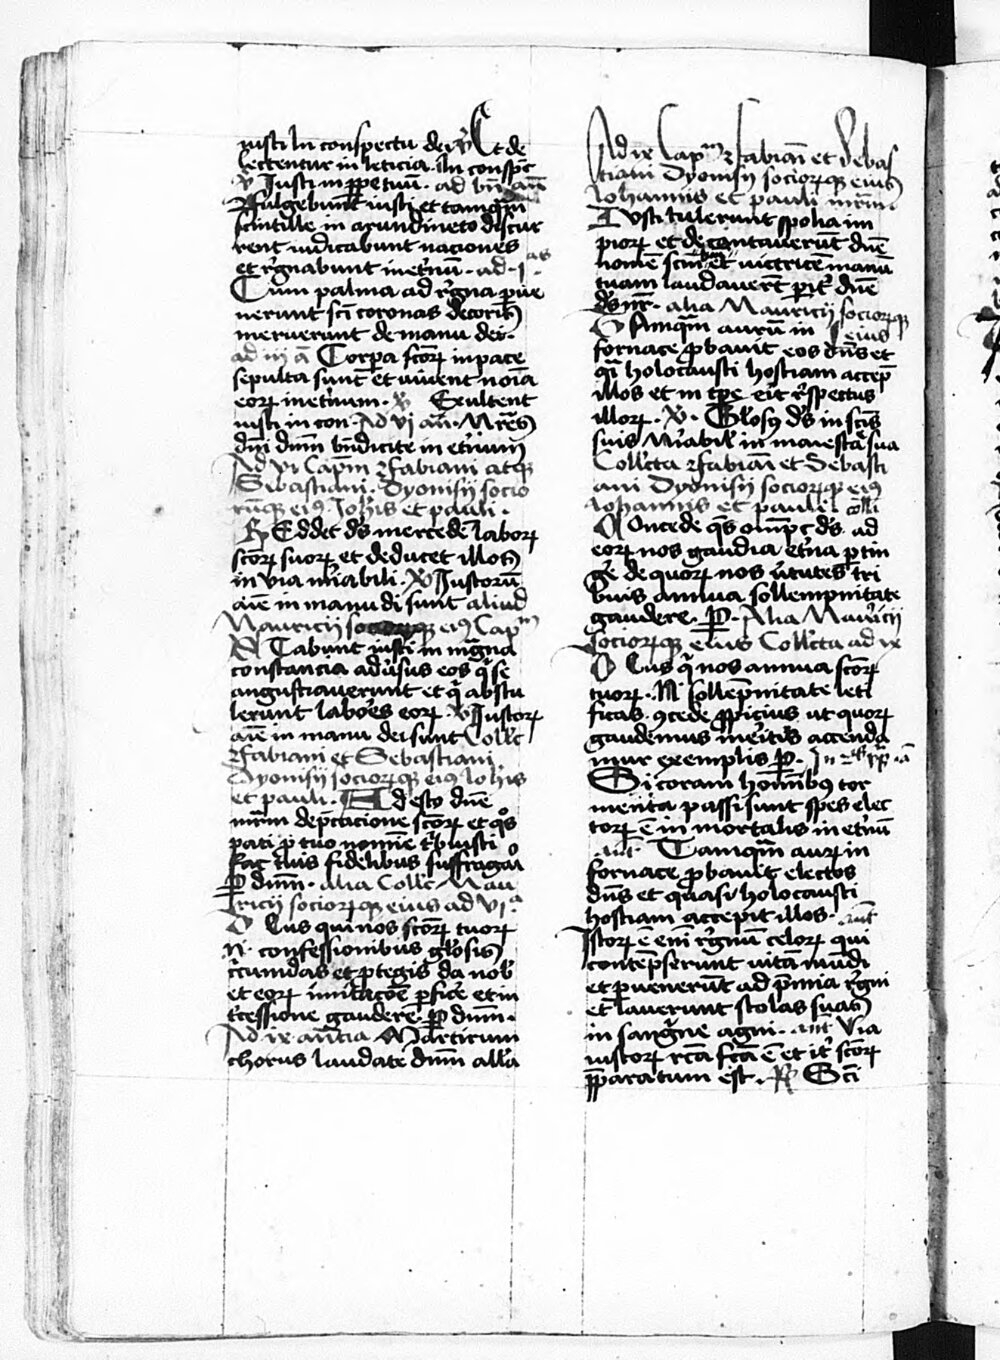 iusti In conspectu dei ℣ Et de
lectentur in leticia. In conspc̄
℣ Iusti in ꝑpetuū. ad bn̄ an̄
Fulgebunt iusti et tamqm̄
scintille in arundineto discur
rent iudicabunt naciones
et rͥgnabunt inet̓nū. ad .jas
Cum palma ad rͥgna ꝑue
nerunt sc̄i coronas decoris
meruerunt de manu dei.
ad iij a᷒ Corpa sc̄oꝝ in pace
sepulta sunt et viuent noīa
eoꝝ inet̓num. ℣ Exultent
iusti in con. Ad vj an̄. Mr̄es
dn̄i dnm̄ bn̄dicite in et̓num
Ad vi Capm̄ Fabiani atqꝫ
Sebastiani. Dyonisij socio
rūqꝫ eiꝰ Ioh̄is et pauli.
Reddet dˢ mercedē laboꝝ
sc̄oꝝ suoꝝ et deducet illos
in via mr̄abili. ℣ Iustorū
aīe in manu di sunt aliud
Mauricij socioꝝqꝫ eiꝰ Capm̄
Stabunt iusti in mgͣna
constancia adūsus eos qͥ se
angustiauerunt et qͥ abstu
lerunt labōes eoꝝ. ℣ Iustoꝝ
aīe in manu dei sunt Coll̄c
Fabiani et Sebastiani.
Dyonisij socioꝝqꝫ eiꝰ Ioh̄is
et pauli. Adesto dn̄e
nr̄m dep̄catione sc̄oꝝ et qͦs
pati ꝓ tuo nomīe tͥbuisti
fac tuis fidelibus suffragari
P dnm̄. alia Coll̄c Mau
ricij socioꝝqꝫ eius ad vja
Deus qui nos sc̄oꝝ tuoꝝ
N. confessionibus gl̄osis
ccumdas et ꝓtegis da nob̓
et eoꝝ imitac̄oe ꝓfice et in
t̓cessione gaudere. P dnm̄.
Ad ix an̄cia Martirum
chorus laudate dnm̄ all̄a
Ad ix Capm̄ Fabiani et Sebas
tiani Dyonisij socioꝝqꝫ eius
Iohannis et pauli mr̄m.
Iusti tulerunt spolia im
pioꝝ et decantauerūt dn̄e
nomē scm̄ tuū et victricē manū
tuam laudauer̄t parit̓ dn̄e
dˢ nr̄. alia Mauricij socioꝝqꝫ
Tamqm̄ aurū in eius
fornace ꝓbauit eos dn̄s et
qͥ holocausti hostiam accep̄
illos et in tp̄e erit rͥspectus
illoꝝ. ℣. Gl̄osꝰ dˢ in sc̄is
suis Mr̄abil̓ in maiestāte sua
Collecta Fabiani et Sebasti
ani Dyonisij socioꝝqꝫ eiꝰ
Iohannis et pauli coll̄
Concede qs̄ omp̄s dˢ. ad
eoꝝ nos gaudia et̓na ꝑtin
ge͛ de quoꝝ nos v̓tutes tri
buis annua sollempnitate
gaudere. P. Alia Mauricij
socioꝝqꝫ eius Collecta ad ix
Deus qͥ nos annua sc̄oꝝ
tuoꝝ. N. sollēpnitate leti
ficas. ꝯcede ꝓpicius ut quoꝝ
gaudemus m̓itis accenda
mur exemplis P. In 2is vesp̄ꝭ .a᷒
Si coram hominibꝰ tor
menta passi sunt spes elec
toꝝ ē in mortalis in et̓nū
ant Tamqm̄ auꝝ in
fornace ꝓbauit electos
dn̄s et quasi holocausti
hostiam accepit illos. ant
Istoꝝ ē em̄ rͥgnū celoꝝ qui
contēpserunt vitā mūdi
et ꝑuenerūt ad p̄mia rͥgni
et lauerunt stolas suas
in sangͥne agni. ant Via
iustoꝝ rc̄a fc̄a ē et it̓ sc̄oꝝ
p̄paratum est. ℟ Sc̄i